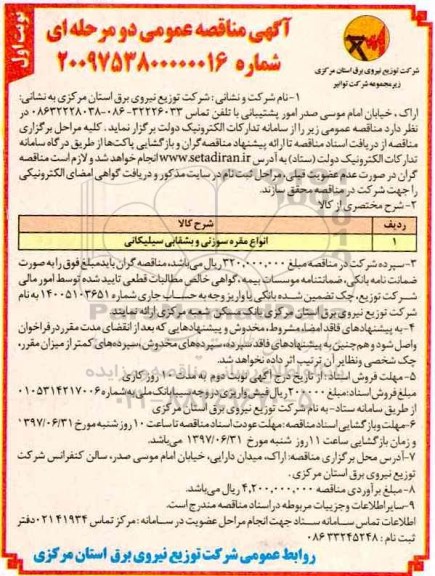 نوبت اول
آگهی مناقصه عمومی دو مرحله ای
شماره ۲۰۰۹۷۵۳۸۰۰۰۰۰۰۱۶
شرکت توزیع نیروی برق استان مرکزی
زیرمجموعه شرکت توانیر
۱-نام شرکت و نشانی: شرکت توزیع نیروی برق استان مرکزی به نشانی:
اراک، خیابان امام موسی صدر امور پشتیبانی با تلفن تماس ۳۲۲۲۶۰۳۳-۰۸۶ ۰۸۶۳۲۲۲۸۰۳۸ در
نظر دارد مناقصه عمومی زیر را از سامانه تدارکات الکترونیک دولت برگزار نماید. کلیه مراحل برگزاری
مناقصه از دریافت اسناد مناقصه تا ارائه پیشنهاد مناقصه گران و بازگشایی پاکت‌ها از طریق درگاه سامانه
تدارکات الکترونیک دولت (ستاد) به آدرس www.setadiran.ir انجام خواهد شد و لازم است مناقصه
گران در صورت عدم عضویت قبلی، مراحل ثبت نام در سایت مذکور و دریافت گواهی امضای الکترونیکی
را جهت شرکت در مناقصه محقق سازند.
۲-شرح مختصری از کالا
ردیف شرح کالا
۱ انواع مقره سوزنی و بشقابی سیلیکانی
۳-سپرده شرکت در مناقصه مبلغ ۳۲۰,۰۰۰,۰۰۰ ریال می‌باشد، مناقصه گران باید مبلغ فوق را به صورت
ضمانت نامه بانکی، ضمانتنامه موسسات بیمه، گواهی خالص مطالبات قطعی تایید شده توسط امور مالی
شرکت توزیع، چک تضمین شده بانکی یا واریز وجه به حساب جاری شماره ۱۴۰۰۵۱۰۳۶۵۱ به نام
شرکت توزیع نیروی برق استان مرکزی بانک ملت شعبه مرکزی ارائه نمایند.
۴- به پیشنهادهای فاقد امضا، مشروط، مخدوش و پیشنهادهایی که بعد از انقضای مدت مقرر در فراخوان
واصل شود و هم چنین به پیشنهادهای فاقد سپرده، سپرده‌های مخدوش، سپرده‌های کمتر از میزان مقرر،
چک شخصی و نظایر آن ترتیب اثر داده نخواهد شد.
۵- مهلت فروش اسناد: از تاریخ درج آگهی نوبت دوم به مدت ۱۰ روز کاری.
مبلغ فروش اسناد: مبلغ ۲۰۰۰۰۰ ریال فیش واریزی وجه سیبا بانک ملی به شماره ۰۱۰۵۳۱۴۲۱۷۰۰۶
از طریق سامانه ستاد- به نام شرکت توزیع نیروی برق استان مرکزی
۶-مهلت و بازگشایی اسناد مناقصه: مهلت عودت اسناد مناقصه تا ساعت ۱۰ روز شنبه مورخ ۱۳۹۷/۰۶/۳۱
و زمان بازگشایی ساعت ۱۱ روز شنبه مورخ ۱۳۹۷/۰۶/۳۱ می‌باشد.
۷-آدرس محل برگزاری مناقصه: اراک، میدان دارایی، خیابان امام موسی صدر، سالن کنفرانس شرکت
توزیع نیروی برق استان مرکزی.
۸-مبلغ برآوردی مناقصه ۴,۲۰۰,۰۰۰,۰۰۰ ریال می‌باشد.
۹-سایر اطلاعات و جزییات مربوطه در اسناد مناقصه مندرج است.
اطلاعات تماس سامانه ستاد جهت انجام مراحل عضویت در سامانه: مرکز تماس ۴۱۹۳۴-۰۲۱ دفتر
ثبت نام: ۳۳۲۴۵۲۴۸-۰۸۶
روابط عمومی شرکت توزیع نیروی برق استان مرکزی